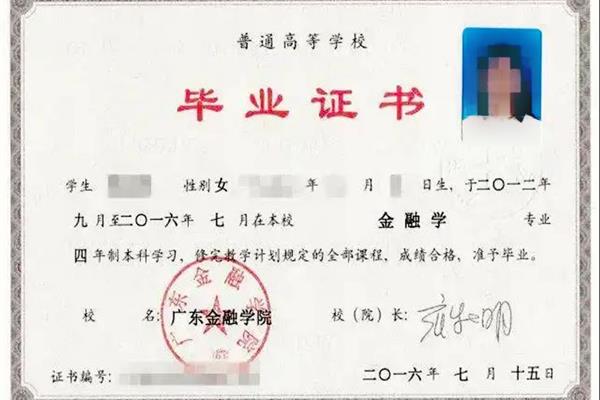 普通高等学校
毕业证书
学生 性别 女 年 月 日生，于二〇一二年
九月至二〇一六年 七 月在本校 金融学 专业
四 年制本科学习，修完教学计划规定的全部课程，成绩合格，准予毕业。
校 名：广东金融学院 校（院）长：
广东金融学院
证书编号：
二〇一六年 七 月 十五日